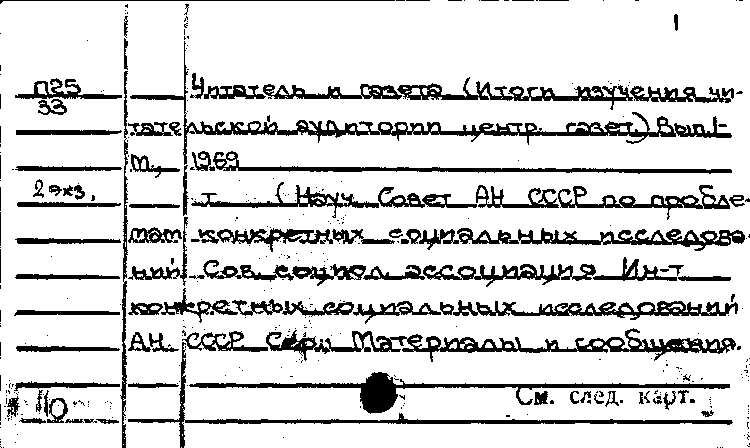 1
П25 Читатель и газета (Итоги изучения чи-
33
тательской аудитории центр. газет.) Вып. 1-
М., 1969
2 экз. т. (Науч. Совет АН СССР по пробле-
мам конкретных социальных исследова-
ний Сов. социол. ассоциация Ин-т
конкретных социальных исследований
АН СССР Сери Материалы и сообщения.
См. след. карт.
110